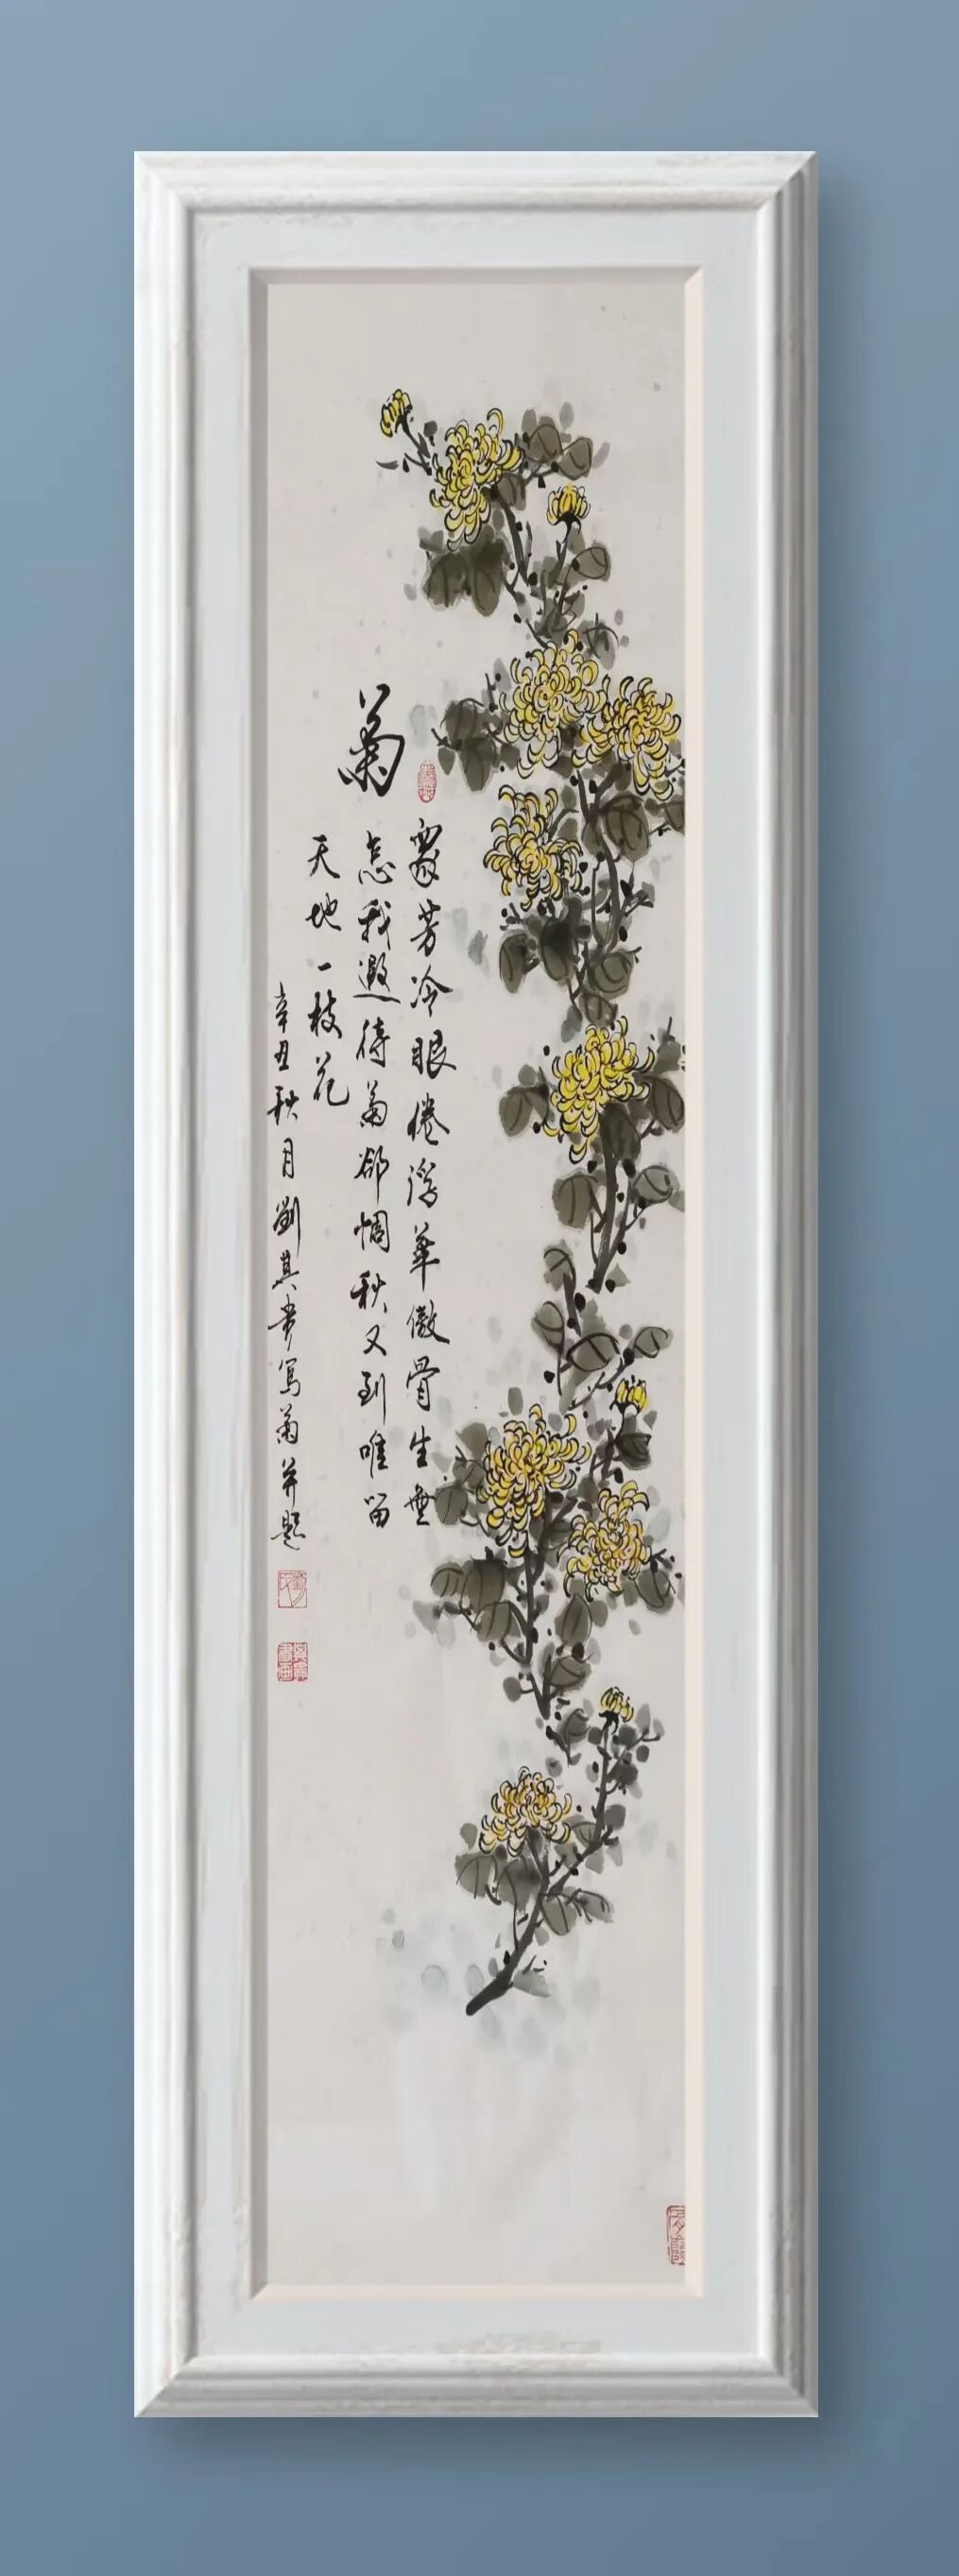 菊
眾芳冷眼倦浮華傲骨生無
我遐待菊卻惆秋又到唯留
天地一枝花
辛丑秋月劉其貴寫菊并題